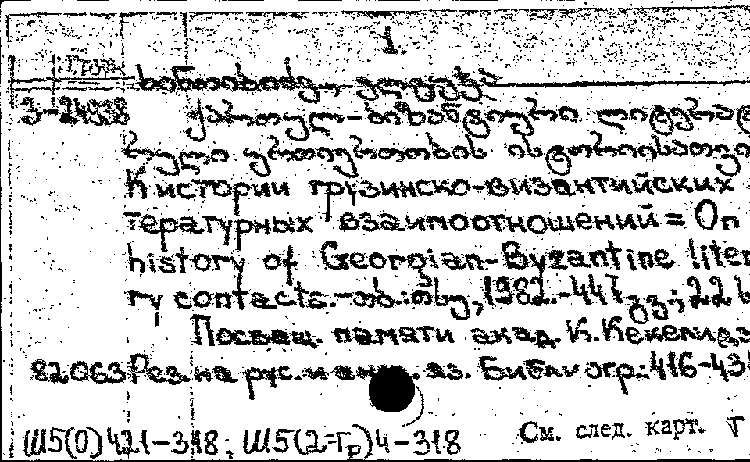 1
Груз.
ხინთიბიძე ელგუჯა
3-24938 ქართულ-ბიზანტიური ლიტერატ
რული ურთიერთობის ისტორიისათვი
К истории грузинско-византийских
тературных взаимоотношений = On
history of Georgian-Byzantine liter
ry contacts.-თბ.:თსუ, 1982.-447 გვ.; 22
Посвящ. памяти акад. К.Кекелидз
82063 Рез. на рус. и англ. яз. Библиогр.: 416-43
Ш5(0)421-318; Ш5(2=Гр)4-318 См. след. карт.